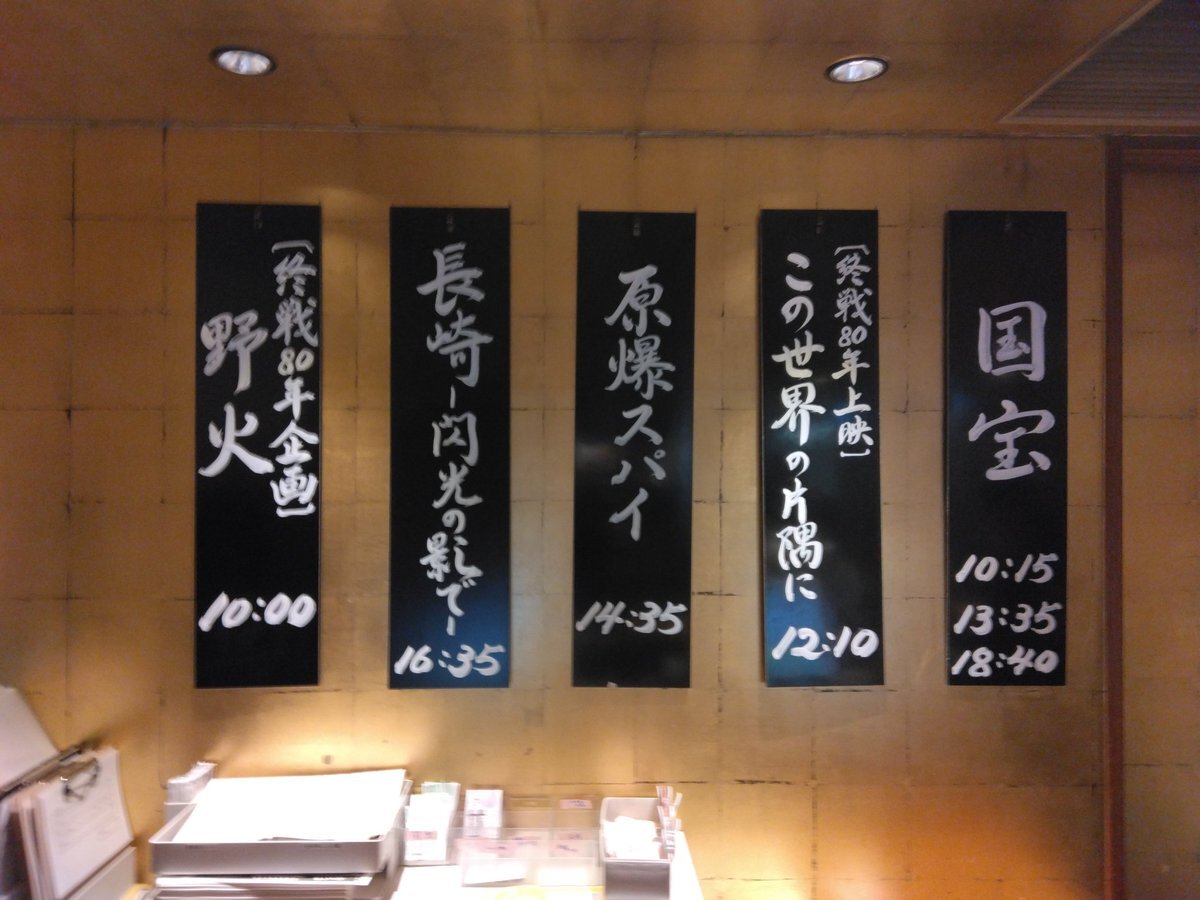 国宝
10:15
13:35
18:40
〔終戦80年上映〕
この世界の片隅に
12:10
原爆スパイ
14:35
長崎―閃光の影で―
16:35
〔終戦80年企画〕
野火
10:00